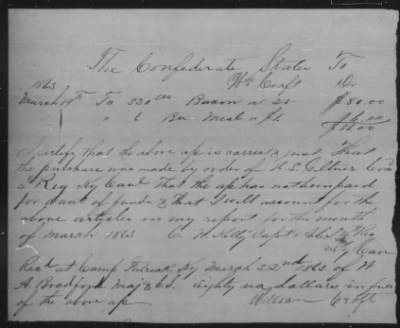 The Confederate States To
Wm Croft Dr
1863
March 19th To 320 lbs Bacon a 25 $80.00
" " 6 Bu Meal a $1 $6.00
$86.00
I certify that the above a/c is correct & just. That
the purchase was made by order of H. L. Giltner Com
a Reg Ky Cavl That the a/c has not been paid
for want of funds & that I will account for the
above articles in my report for the month
of March 1863
Recd at Camp Ky March 22nd 1863 of W
A Bradford Maj & C.S. Eighty six dollars in full
of the above a/c
William Croft